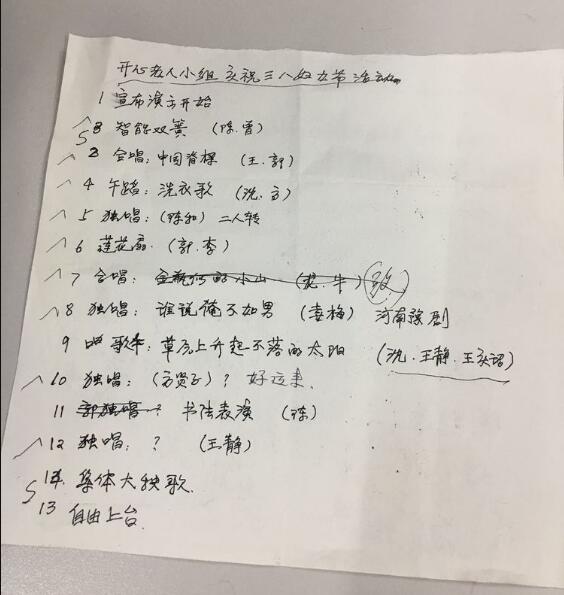 开心老人小组庆祝三八妇女节活动
1 宣布演出开始
3 智能双簧 (陈.曾)
2 合唱:中国脊梁 (王.郭)
4 午蹈:洗衣歌 (沈.方)
5 独唱:(陈和) 二人转
6 莲花扇.(郭.李)
7 合唱:
8 独唱:谁说俺不如男 (袁梅) 河南豫剧
9 唱歌:草原上升起不落的太阳 (沈.王静.王奕谄)
10 独唱:(方贤) ? 好运来.
11 郭独唱? 书法表演 (陈)
12 独唱:? (王静)
14. 集体大秧歌.
13 自由上台.